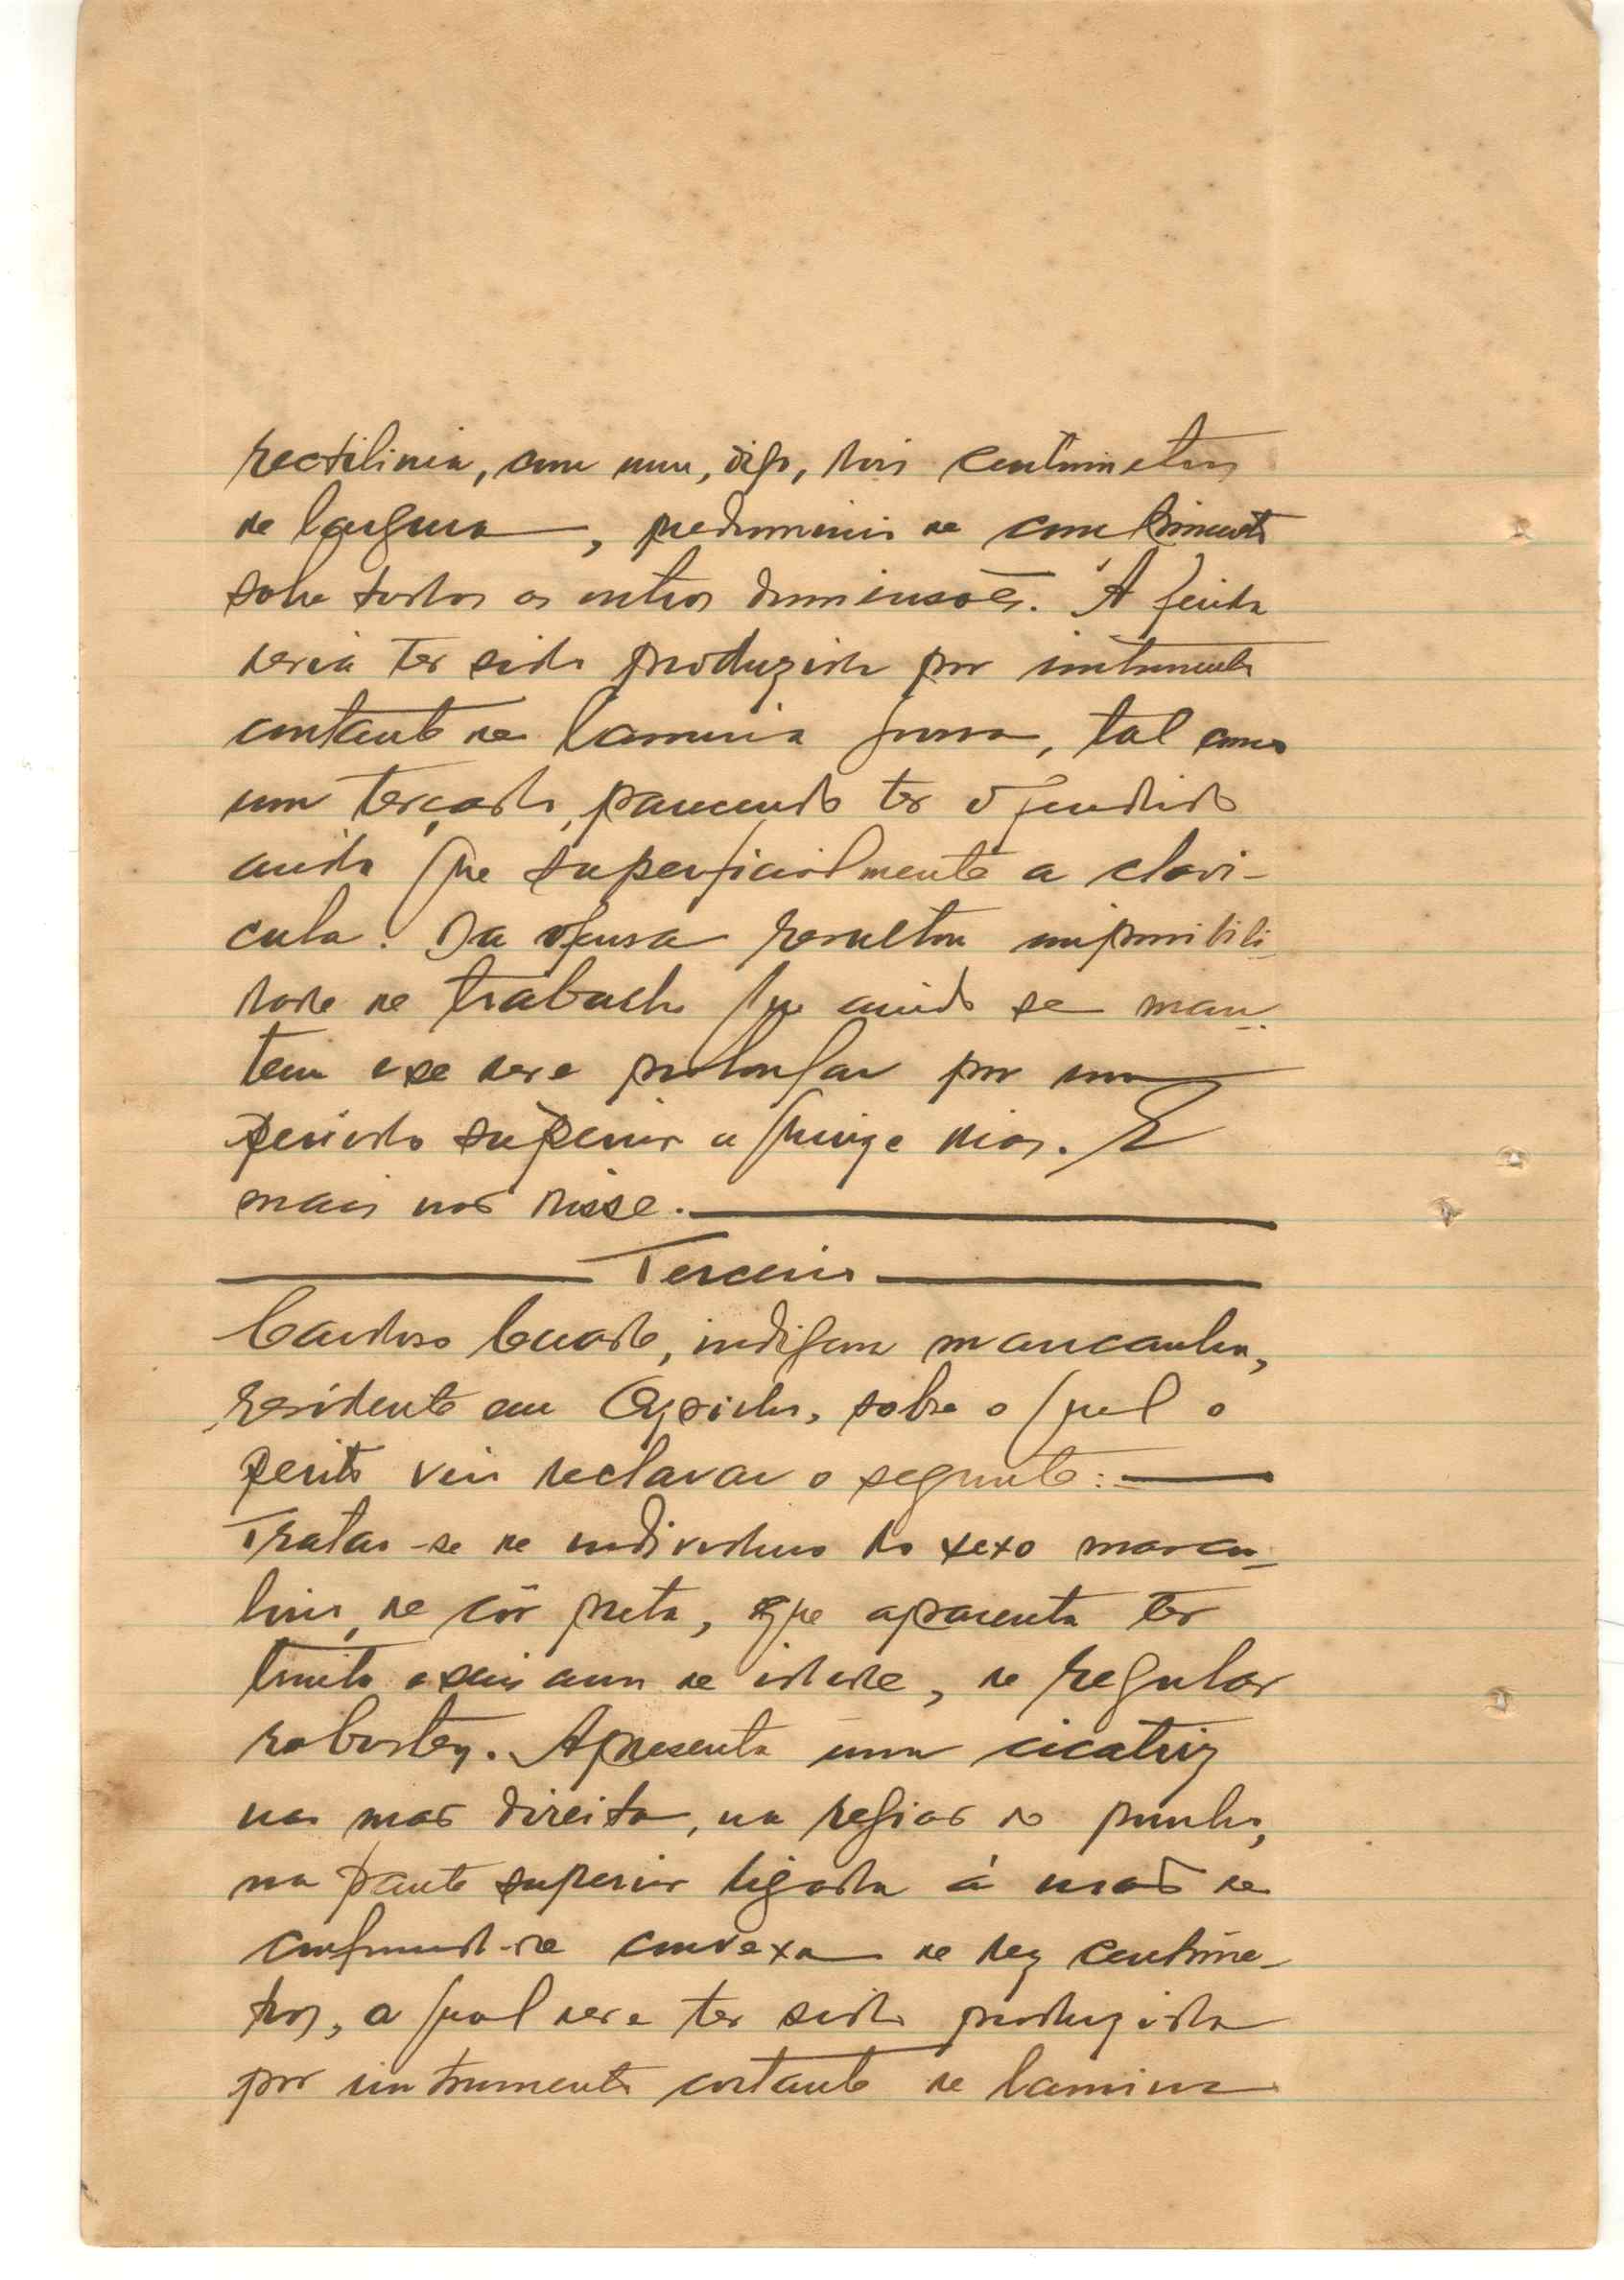 rectilinia, com um, digo, dois centimetros
de largura, predominio de comprimento
sobre todas as outras dimensões. A ferida
devia ter sido produzida por instrumento
cortante de lamina grossa, tal como
um terçado, parecendo ter ofendido
ainda que superficialmente a clavi-
cula. Da ofensa resultou impossibili-
dade de trabalho que ainda se man-
tem e se deve prolongar por um
periodo superior a quinze dias. E
mais não disse.
Terceiro
Cardoso, indigena mancanha,
residente em, sobre o qual o
perito veio declarar o seguinte:
Tratar-se de individuo do sexo mascu-
lino, de côr preta, que aparenta ter
trinta e seis anos de idade, de regular
robustez. Apresenta uma cicatriz
na mão direita, na região do punho,
na parte superior ligada á mão de
convexa de dez centime-
tros, a qual deve ter sido produzida
por instrumento cortante de lamina